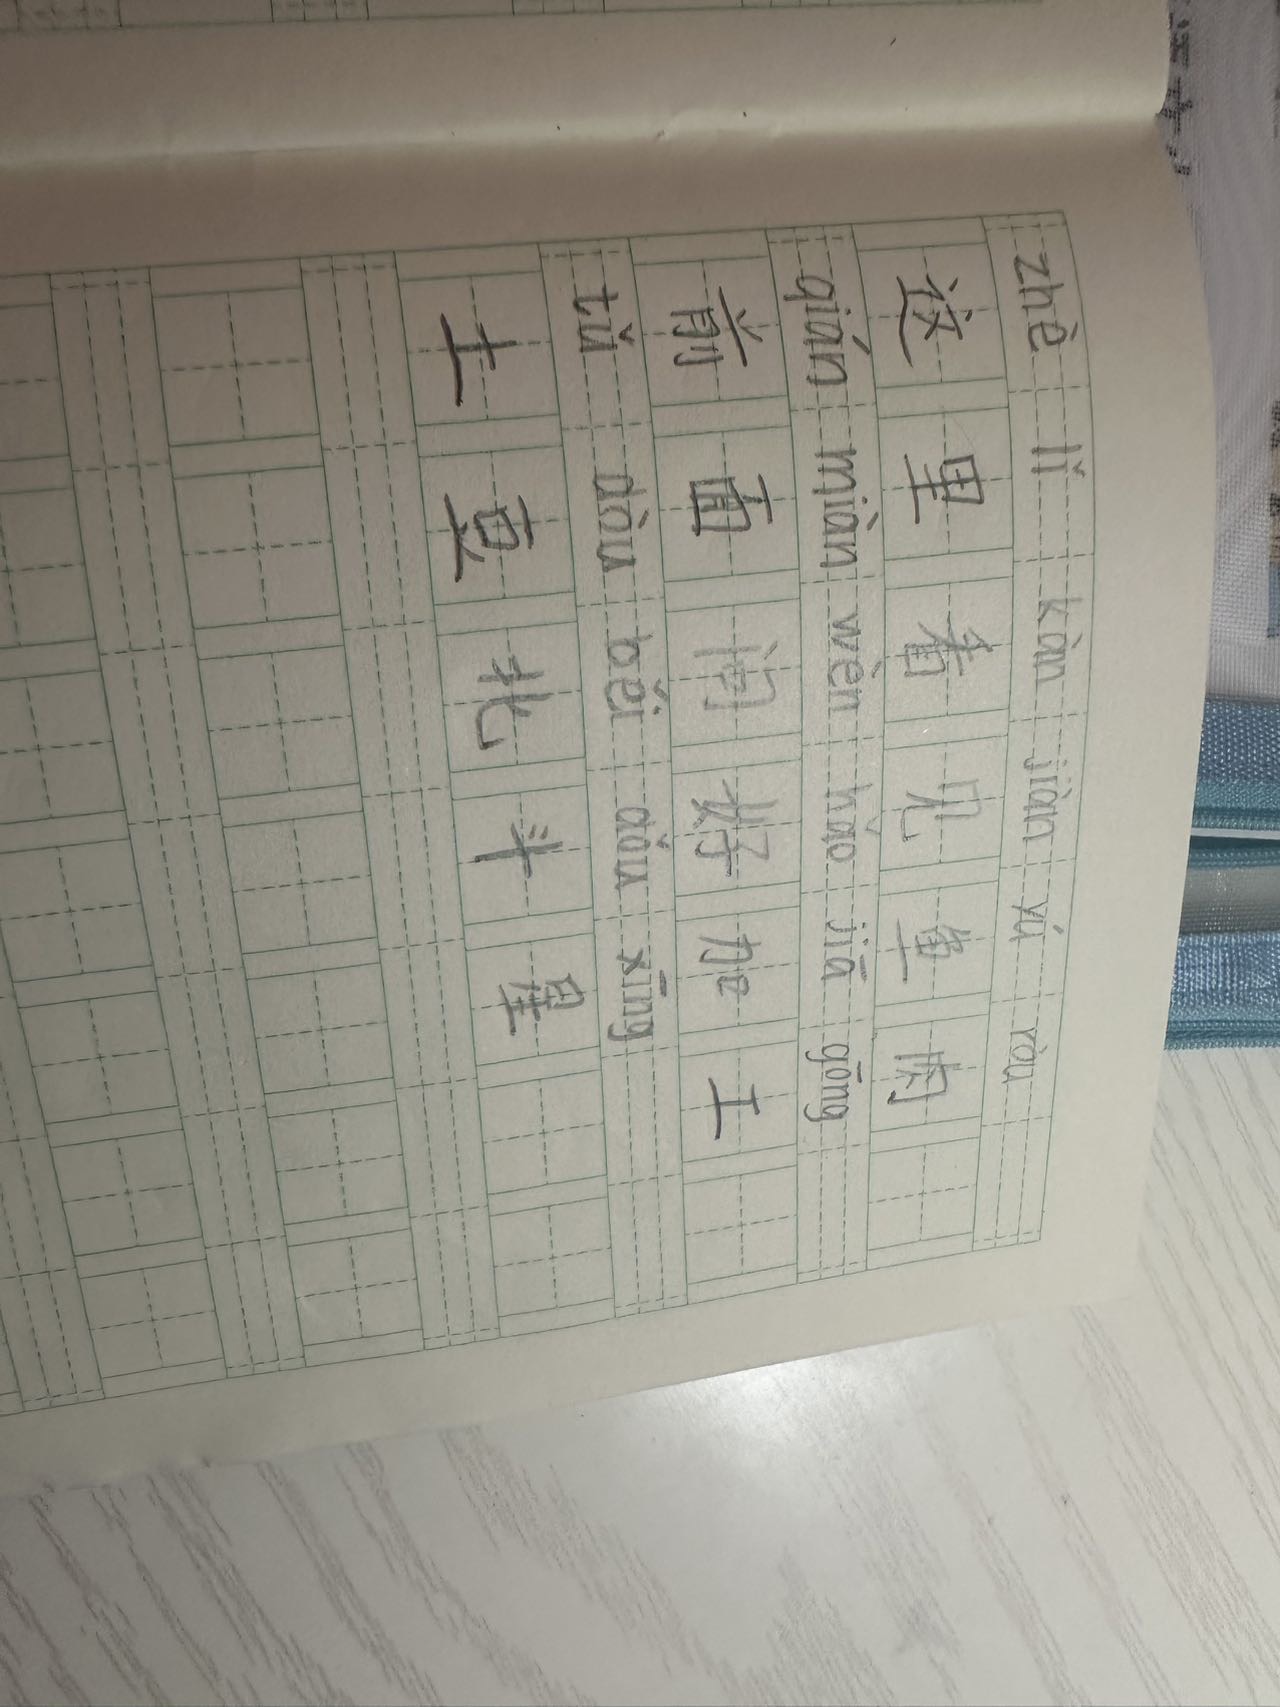 zhè lǐ kàn jiàn yú ròu
这里看见鱼肉
qián miàn wèn hǎo jiā gōng
前面问好加工
tǔ dòu běi dǒu xīng
土豆北斗星